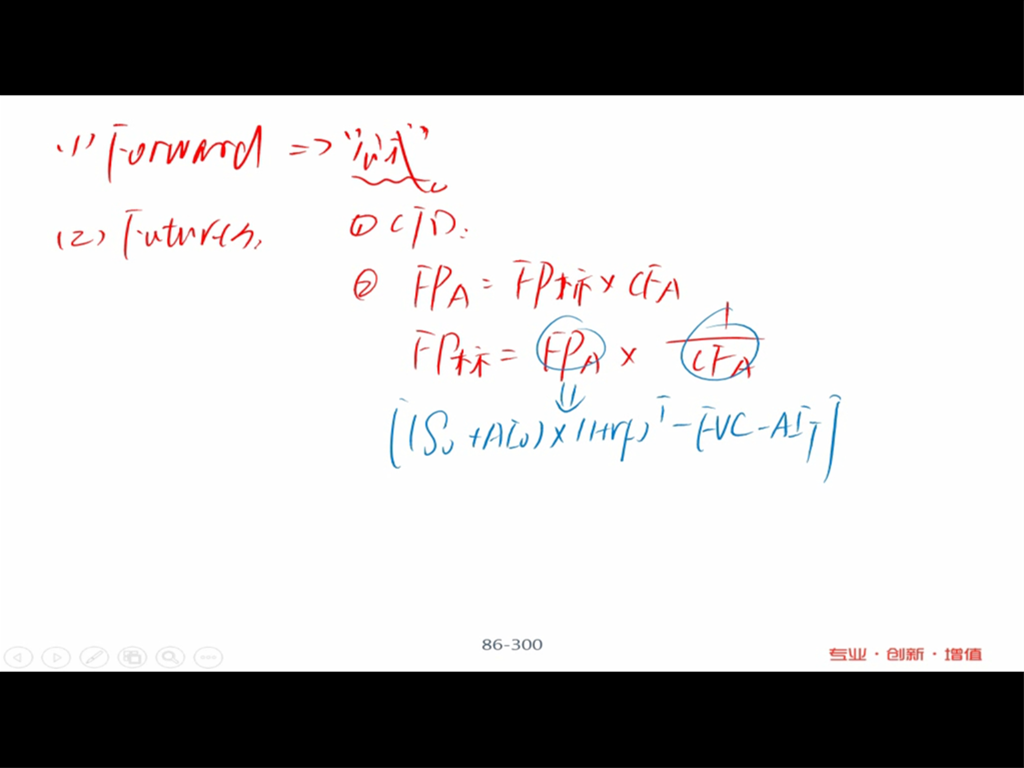 (1) Forward => "公式"
(2) Futures, ① CTD:
② FP_A = FP标 × CF_A
FP标 = FP_A × 1/CF_A
⇓
[(S_0 + AI_0) × (1+rf)^T - FVC - AI_T]
86-300
专业·创新·增值